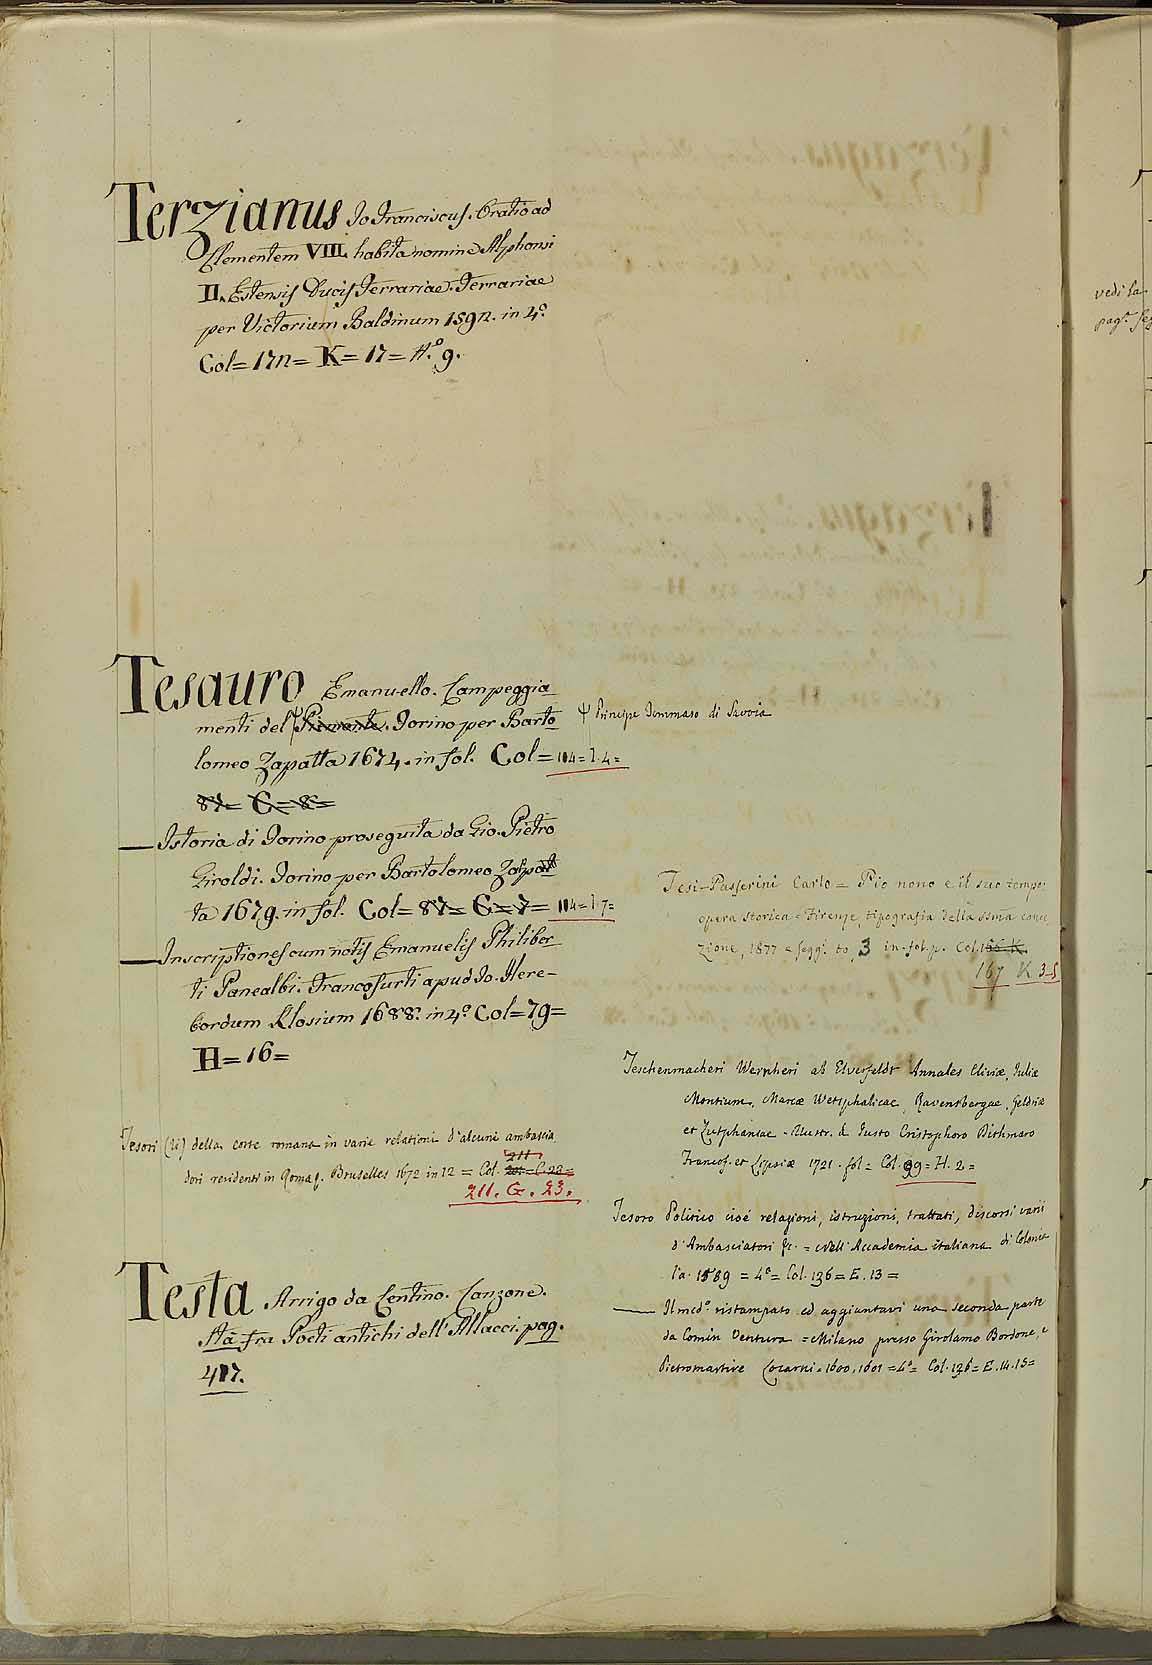 Terzianus Jo Franciscus. Oratio ad
Clementem VIII. habita nomine Alphonsi
II. Estensis Ducis Ferrariae. Ferrariae
per Victorium Baldinum 1592. in 4.o
Col=172= K= 17= N.o 9.
Tesauro Emanuello. Campeggia
menti del Piemonte. Torino per Barto
lomeo Zapatta 1674. in fol. Col= 104= I. 4=
87= C= 8=
Istoria di Torino proseguita da Gio. Pietro
Giroldi. Torino per Bartolomeo Zapat
ta 1679. in fol. Col= 87= C= 7= 104= I. 7=
Inscriptiones cum notis Emanuelis Philiber
ti Panealbi. Francofurti apud Jo. Here-
bordum Klosium 1688. in 4.o Col=79=
H=16=
Tesori (Li) della corte romana in varie relationi d'alcuni ambascia
dori residenti in Roma &. Bruselles 1672 in 12 = Col. 211
211. G. 23.
Testa Arrigo da Lentino. Canzone.
Stà fra Poeti antichi dell'Allacci. pag.
417.
Ψ Principe Tommaso di Savoia
Tesi-Passerini Carlo = Pio nono e il suo tempo:
opera storica = Firenze, tipografia della ssma conce
zione, 1877 e segg. to, 3 in-fol. p. Col. 166 K.
167 K 3-5
Teschenmacheri Wernheri ab Elverfeldt Annales Cliviæ, Juliæ
Montium, Marcæ Wetsphalicae, Ravensbergae, Geldriæ
et Zutphaniae - Illustr. a Justo Cristophoro Dithmaro
Francof. et Lipsiæ 1721. fol = Col. 99= H. 2=
Tesoro Politico cioè relazioni, istruzioni, trattati, discorsi varii
d'Ambasciatori &c. = Nell'Accademia italiana di Colonia
l'a. 1589 = 4o = Col. 136 = E. 13 =
Il med.o ristampato ed aggiuntavi una seconda parte
da Comin Ventura = Milano presso Girolamo Bordone, e
Pietromartire Locarni. 1600, 1601 = 4o = Col. 136 = E. 14. 15=
vedi la
pag.a seg